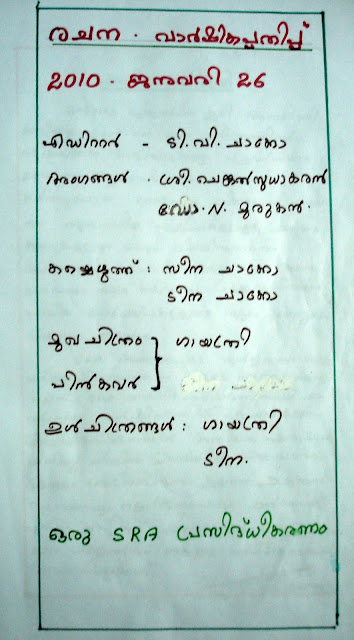 രചന . വാർഷികപ്പതിപ്പ്
2010 . ജനുവരി 26
എഡിറ്റർ - ടി. വി. ചാക്കോ
അംഗങ്ങൾ . ശ്രീ. ചെങ്കൽ സുധാകരൻ
ഡോ. N. മുരുകൻ.
കയ്യെഴുത്ത് : സീന ചാക്കോ
ടീന ചാക്കോ
മുഖചിത്രം } ഗായത്രി
പിൻകവർ
ഉൾചിത്രങ്ങൾ : ഗായത്രി
ടീന.
ഒരു SRA പ്രസിദ്ധീകരണം